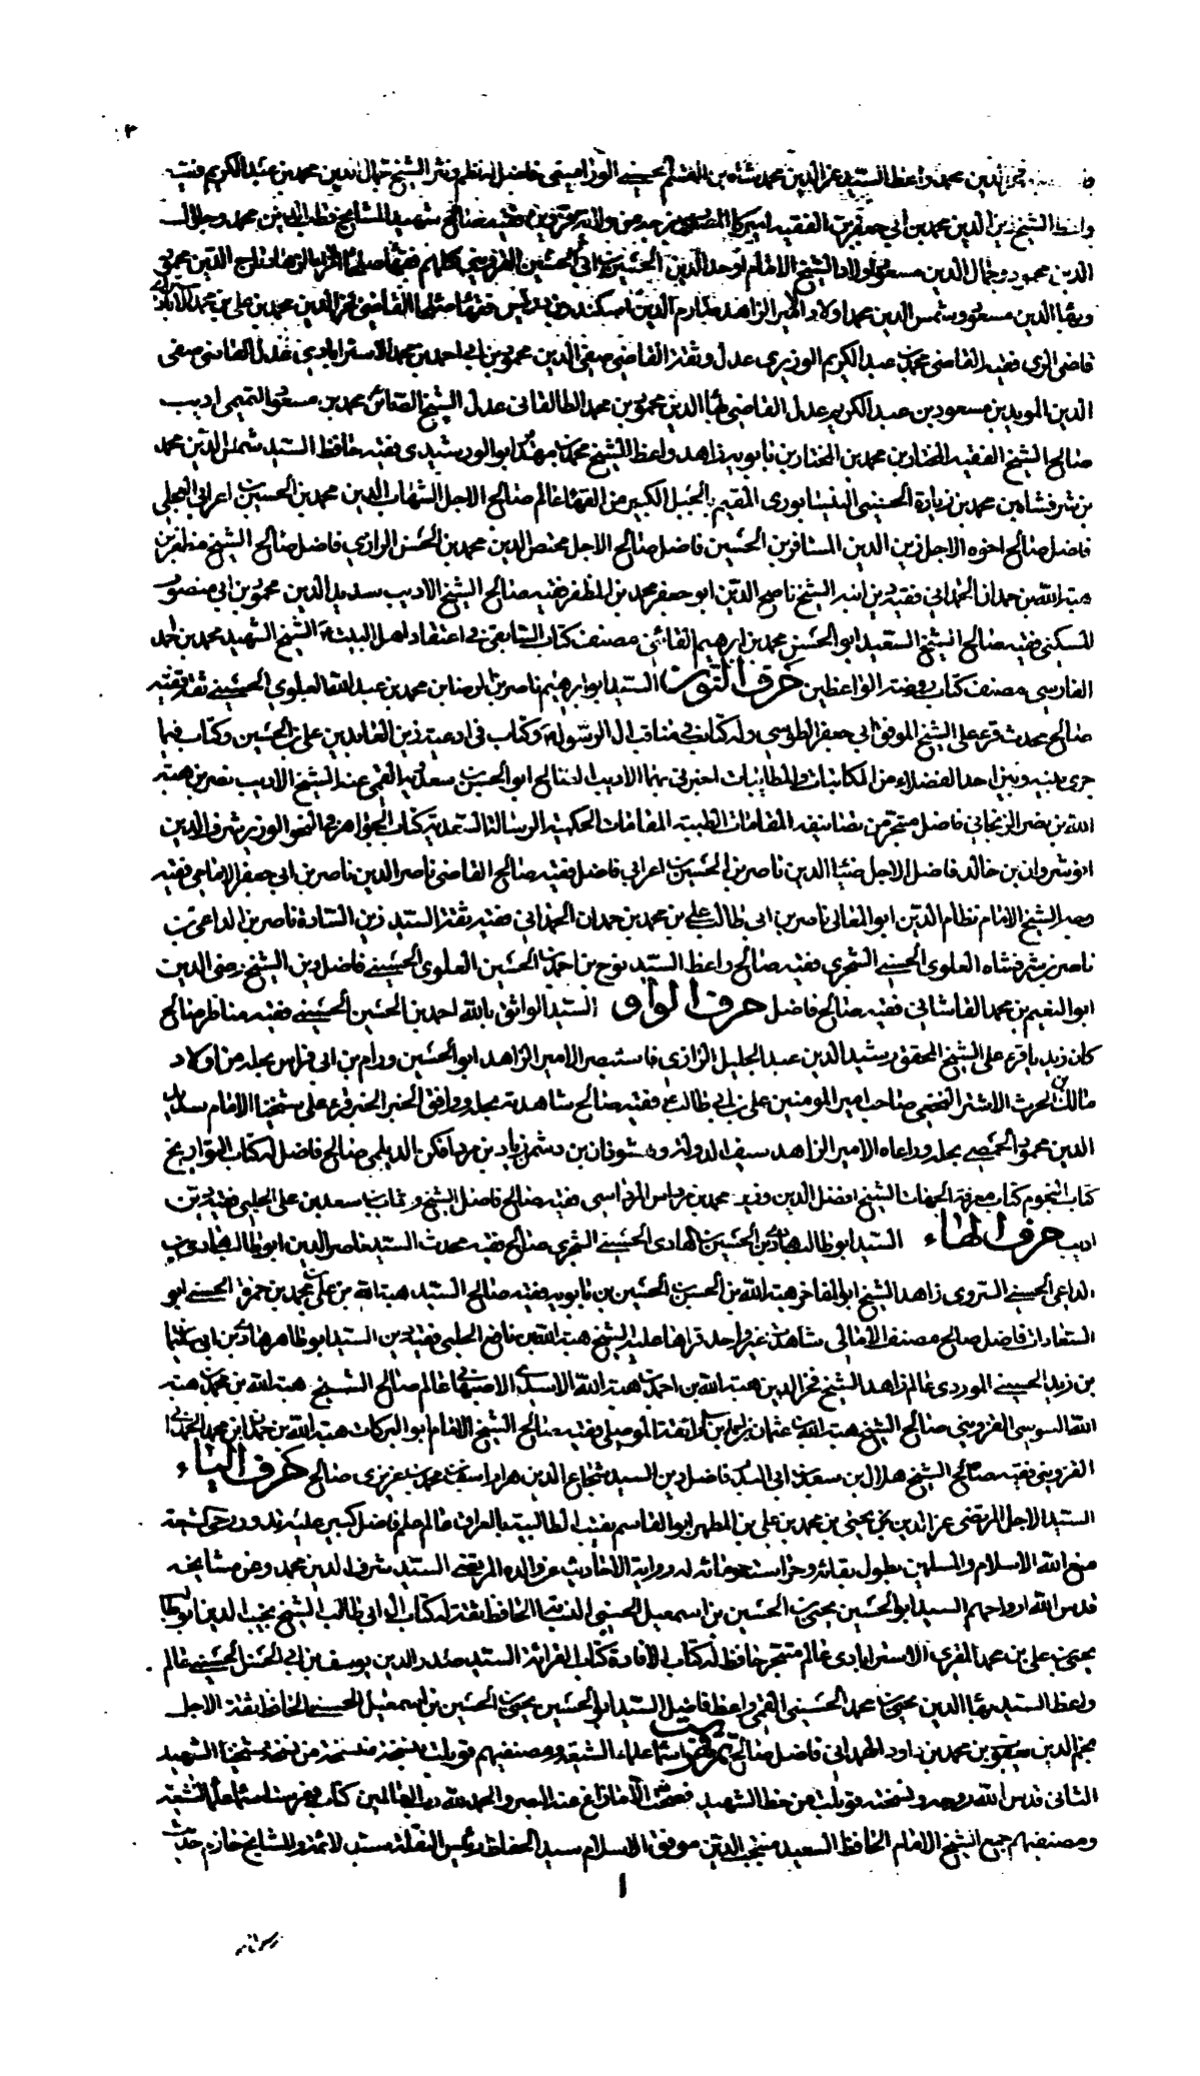 ٣
فخر الدين محمد واعظ السيد عز الدين محمد شاه بن القسم الحسيني الوراميني فاضل له نظم ونثر الشيخ جمال الدين محمد بن عبد الكريم فقيه
واعظ الشيخ زين الدين محمد بن ابي جعفر بن الفقيه اميركا المصدري فقيه صالح شهيد المشايخ قطب الدين محمد وجلال
الدين محمود وجمال الدين مسعود اولاد الشيخ الامام اوحد الدين الحسين بن ابي الحسين القزويني كلهم فقهاء صلحاء تاج الدين محمد
وبهاء الدين مسعود وشمس الدين محمد اولاد الامير الزاهد صارم الدين اسكندر بن دربيس فقهاء صلحاء القاضي فخر الدين محمد بن علي بن محمد الاسترابادي
قاضي الري فقيه القاضي محمد بن عبد الكريم الوزيري عدل وثقة القاضي صفي الدين محمود بن ابي احمد بن محمد الاسترابادي عدل القاضي صفي
الدين المويد بن مسعود بن عبد الكريم عدل القاضي بهاء الدين محمود بن محمد الطالقاني عدل الشيخ الصائن محمد بن مسعود التميمي اديب
صالح الشيخ الفقيه المختار بن محمد بن المختار بن بابويه زاهد واعظ الشيخ محمد بن مهدي ابو الورشيدي فقيه حافظ السيد شمس الدين محمد
بن شرفشاه بن محمد بن زيادة الحسيني النيسابوري المقيم بالجبل الكبير من الفقهاء عالم صالح الاجل الشهاب الدين محمد بن الحسين بن اعرابي العجلي
فاضل صالح اخوه الاجل زين الدين المسافر بن الحسين فاضل صالح الاجل مختص الدين محمد بن الحسن الرازي فاضل صالح الشيخ مظفر بن
هبة الله بن حمدان الحمداني فقيه دين ابنه الشيخ ناصح الدين ابو جعفر محمد بن المظفر فقيه صالح الشيخ الاديب سديد الدين محمود بن ابي منصور
المسكني فقيه صالح الشيخ السعيد ابو الحسن محمد بن ابرهيم القائني مصنف كتاب السابقين في اعتقاد اهل البيت ع الشيخ الشهيد محمد بن احمد
الفارسي مصنف كتاب روضة الواعظين حرف النون السيد ابو ابرهيم ناصر بن الرضا بن محمد بن عبد الله العلوي الحسيني ثقة فقيه
صالح محدث قرء على الشيخ الموفق ابي جعفر الطوسي وله كتاب في مناقب ال الرسول ع وكتاب في ادعية زين العابدين علي بن الحسين وكتاب فيما
جرى بينه وبين احد الفضلاء من المكاتبات والمطايبات اخبرني بها الاديب الصالح ابو الحسن بن سعدويه القمي عنه الشيخ الاديب نصر بن هبة
الله بن نصر الزنجاني فاضل متبحر من تصانيفه المقامات الطبية المقامات الحكمية الرسالة السعدية كتاب الجواهر في النحو الوزير شرف الدين
انوشروان بن خالد فاضل الاجل ضياء الدين ناصر بن الحسين بن اعرابي فاضل فقيه صالح القاضي ناصر الدين ناصر بن ابي جعفر الامامي فقيه
وجه الشيخ الامام نظام الدين ابو المعالي ناصر بن ابي طالب علي بن محمد بن حمدان الحمداني فقيه ثقة السيد زين السادة ناصر بن الداعي بن
ناصر بن شرفشاه العلوي الحسيني الشجري فقيه صالح واعظ السيد نوح بن احمد بن الحسين العلوي الحسيني فاضل دين الشيخ رضي الدين
ابو النعيم بن محمد القاشاني فقيه صالح فاضل حرف الواو السيد الواثق بالله احمد بن الحسين الحسيني فقيه مناظر صالح
كان زيديا قرء على الشيخ المحقق رشيد الدين عبد الجليل الرازي فاستبصر الامير الزاهد ابو الحسين ورام بن ابي فراس بحلة من اولاد
مالك بن الحرث الاشتر النخعي صاحب امير المومنين علي بن ابي طالب ع فقيه صالح شاهدته بحلة ووافق الخبر الخبر قرء على شيخنا الامام سديد
الدين محمود الحمصي بحلة وراعاه الامير الزاهد سيف الدولة وهشوذان بن دشمن زياد بن مردافكن الديلمي صالح فاضل له كتاب التواريخ
كتاب النجوم كتاب معرفة الجهات الشيخ افضل الدين محمد بن مرداس فقيه صالح فاضل الشيخ وثاب بن سعد بن علي الحلي فقيه دين
اديب حرف الهاء السيد ابو طالب هادي بن الحسين بن الهادي الحسيني الشجري صالح فقيه محدث السيد ناصر الدين ابو طالب هادي بن
الداعي الحسيني السروي زاهد الشيخ ابو المفاخر هبة الله بن الحسن بن الحسين بن بابويه فقيه صالح السيد هبة الله بن علي بن محمد بن حمزة الحسني ابو
السعادات فاضل صالح مصنف الامالي شاهدت غير واحد قراها عليه الشيخ هبة الله بن نافع الحلي فقيه دين السيد ابو طاهر هادي بن ابي سليمان
بن زيد الحسيني الموردي عالم زاهد الشيخ فخر الدين هبة الله بن احمد بن هبة الله الاسدي الاصبهاني عالم صالح الشيخ هبة الله بن محمد بن هبة
الله السوسي القزويني صالح الشيخ هبة الله بن عثمان بن احمد الموصلي فقيه صالح الشيخ الامام ابو البركات هبة الله بن حمدان بن محمد الحمداني
القزويني فقيه صالح الشيخ هلال بن سعد بن ابي البدر فاضل دين السيد شجاع الدين هزاراسف بن محمد بن عزيزي صالح حرف الياء
السيد الاجل المرتضى عز الدين يحيى بن محمد بن علي بن المطهر ابو القاسم نقيب الطالبية بالعراق عالم علم فاضل كبير عليه تدور رحى الشيعة
متع الله الاسلام والمسلمين بطول بقائه وحراسة حوبائه له رواية الاحاديث عن والده المرتضى السيد شرف الدين محمد وعن مشايخه
قدس الله ارواحهم السيد ابو الحسين يحيى بن الحسين بن اسمعيل الحسيني النسابة الحافظ ثقة له كتاب ال ابي طالب الشيخ نجيب الدين ابو طالب
يحيى بن علي بن محمد المقري الاسترابادي عالم متبحر حافظ له كتاب الافادة كتاب القرائة السيد صدر الدين يوسف بن ابي الحسن الحسيني عالم
واعظ السيد بهاء الدين يحيى بن محمد الحسيني القمي واعظ فاضل السيد ابو الحسين يحيى بن الحسين بن اسمعيل الحسيني الحافظ ثقة الاجل
نجم الدين يعقوب بن محمد بن داود الهمداني فاضل صالح تم فهرست اسماء علماء الشيعة ومصنفيهم قوبلت بنسخة منتسخة من نسخة شيخنا الشهيد
الثاني قدس الله روحه ونسخته قوبلت من خط الشهيد فصحت الا ما زاغ عنه البصر والحمد لله رب العالمين كتاب فهرست اسماء علماء الشيعة
ومصنفيهم جمع الشيخ الامام الحافظ السعيد منتجب الدين موفق الاسلام سيد الحفاظ رئيس النقلة سيد الائمة والمشايخ خادم حديث
ا
رسول الله